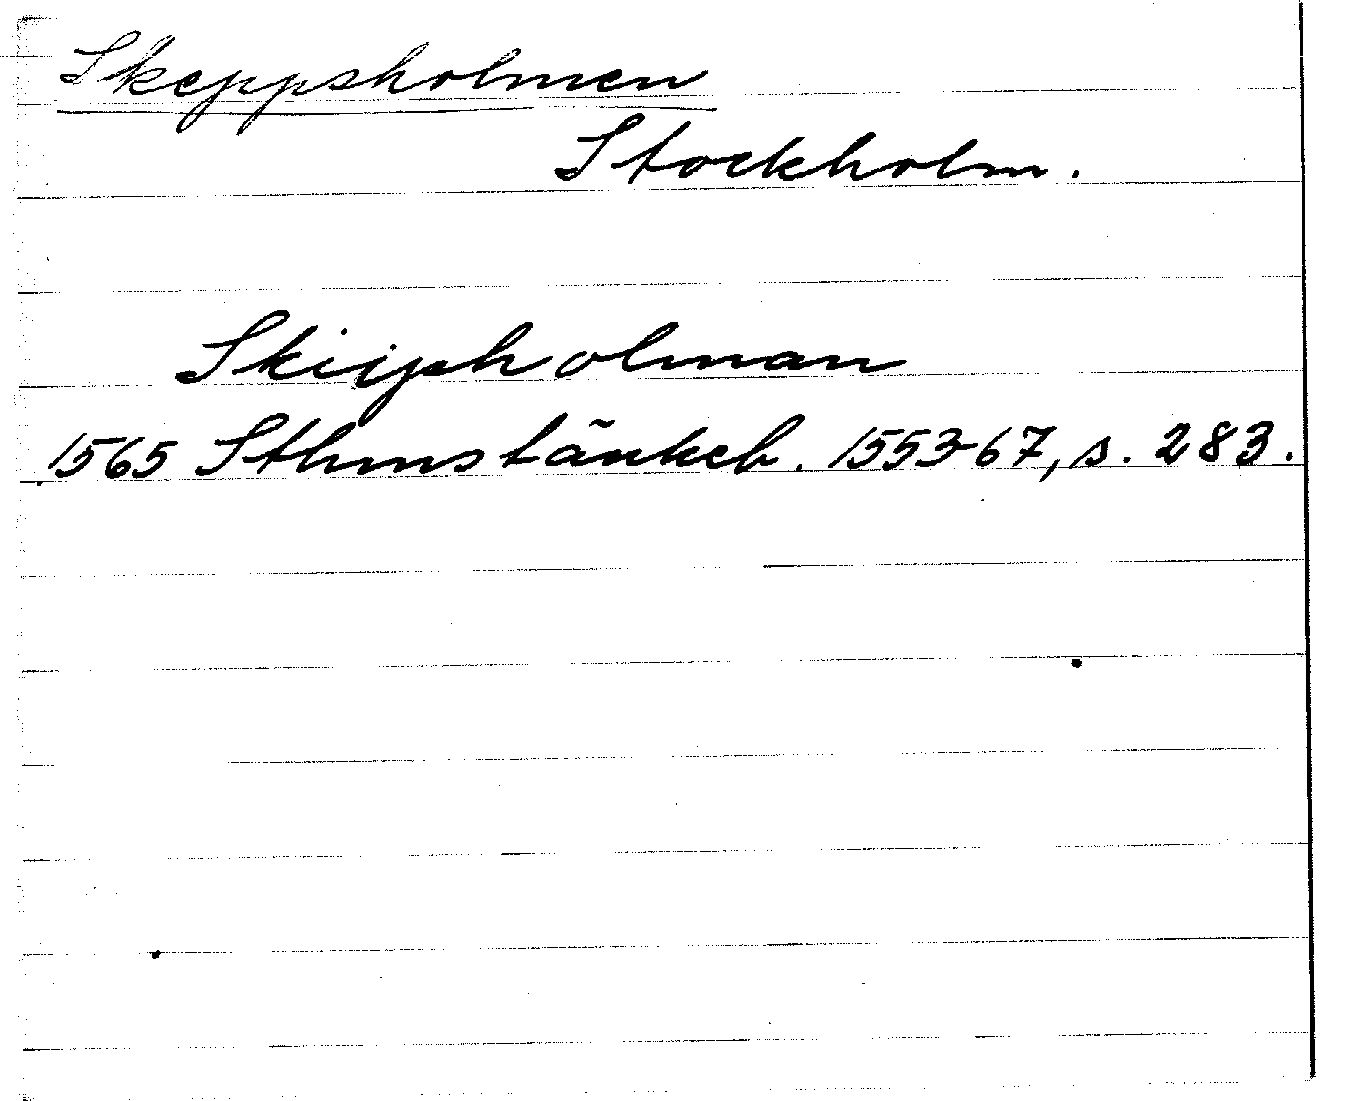 Skeppsholmen
Stockholm.
Skijpholman
1565 Sthmstänkeb. 1553-67, s. 283.